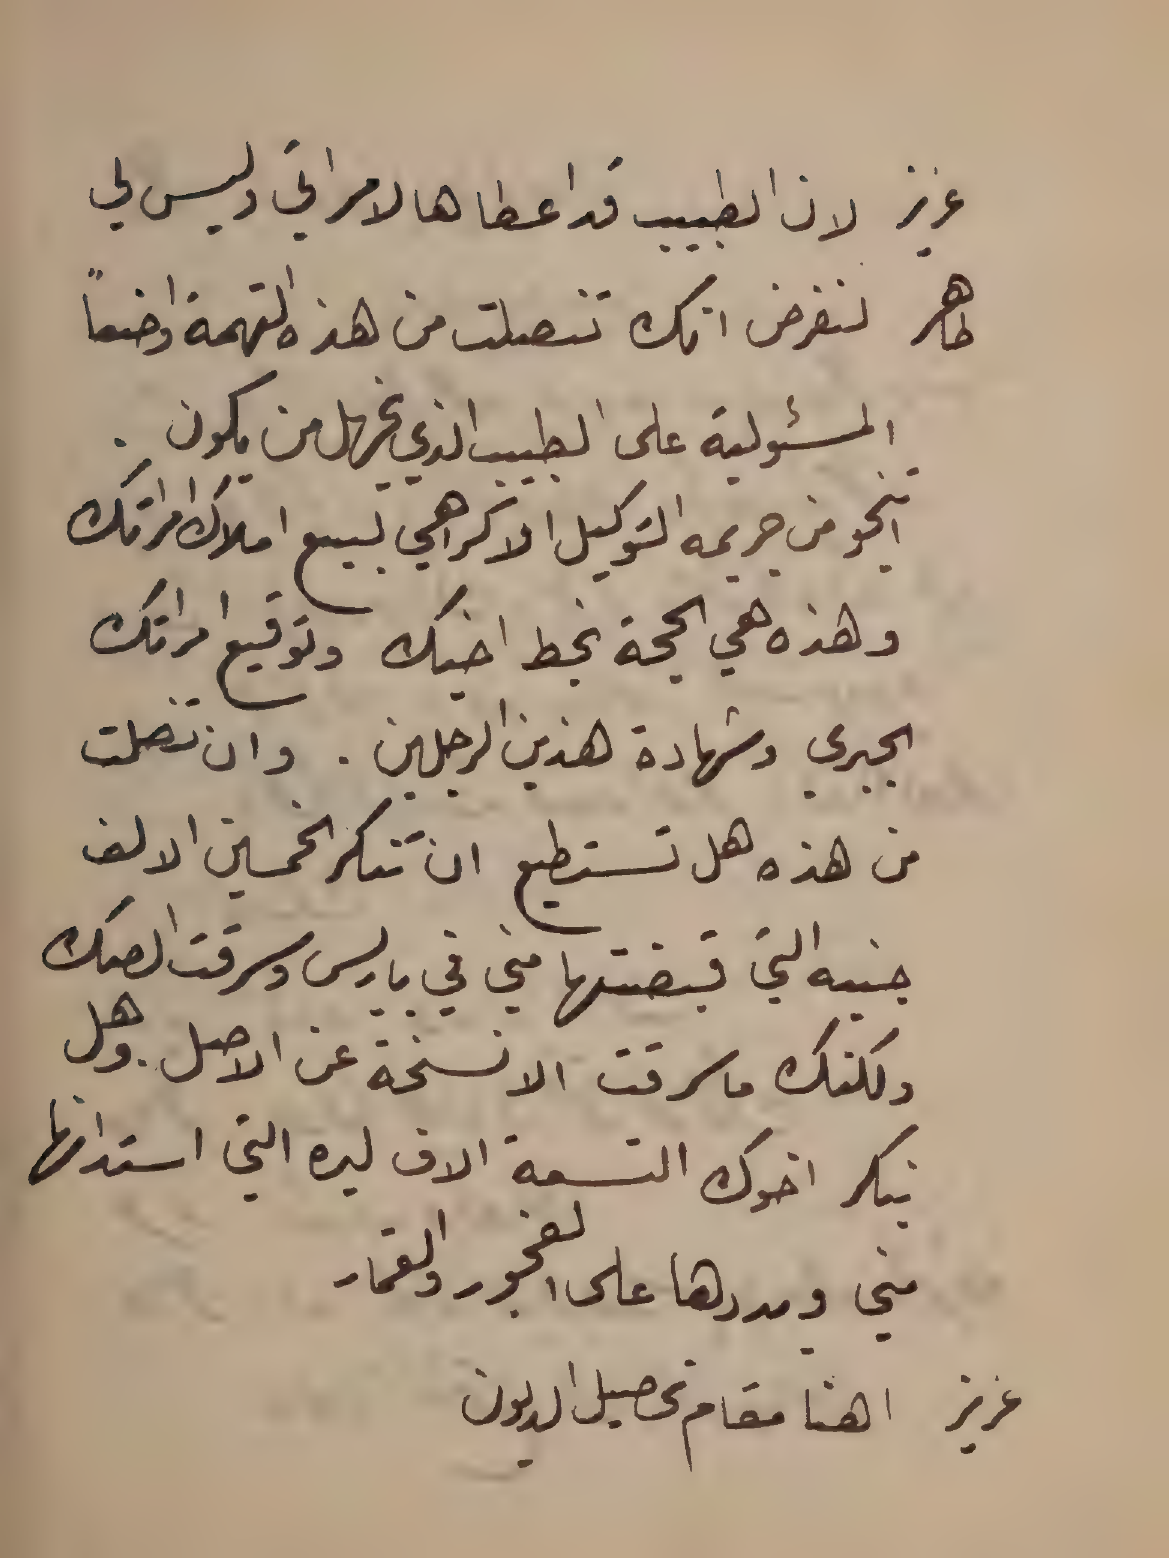 عزيز لان الطبيب قد اعطاها لامراتي وليس لي
طاهر لنفرض انك تنصلت من هذه التهمة واضعاً
المسئولية على الطبيب الذي نجهل من يكون .
اتنجو من جريمه التوكيل الاكراهي لبيع املاك امراتك
وهذه هي الحجة بخط اخيك وتوقيع امراتك
الجبري وشهادة هذين الرجلين . وان تنصلت
من هذه هل تستطيع ان تنكر الخمسين الالف
جنيه التي قبضتها مني في باريس وسرقت الصك
ولكنك ما سرقت الا نسخة عن الاصل . وهل
ينكر اخوك التسعة الاف ليره التي استدانها
مني وبددها على الفجور والقمار
عزيز اهنا مقام تحصيل الديون